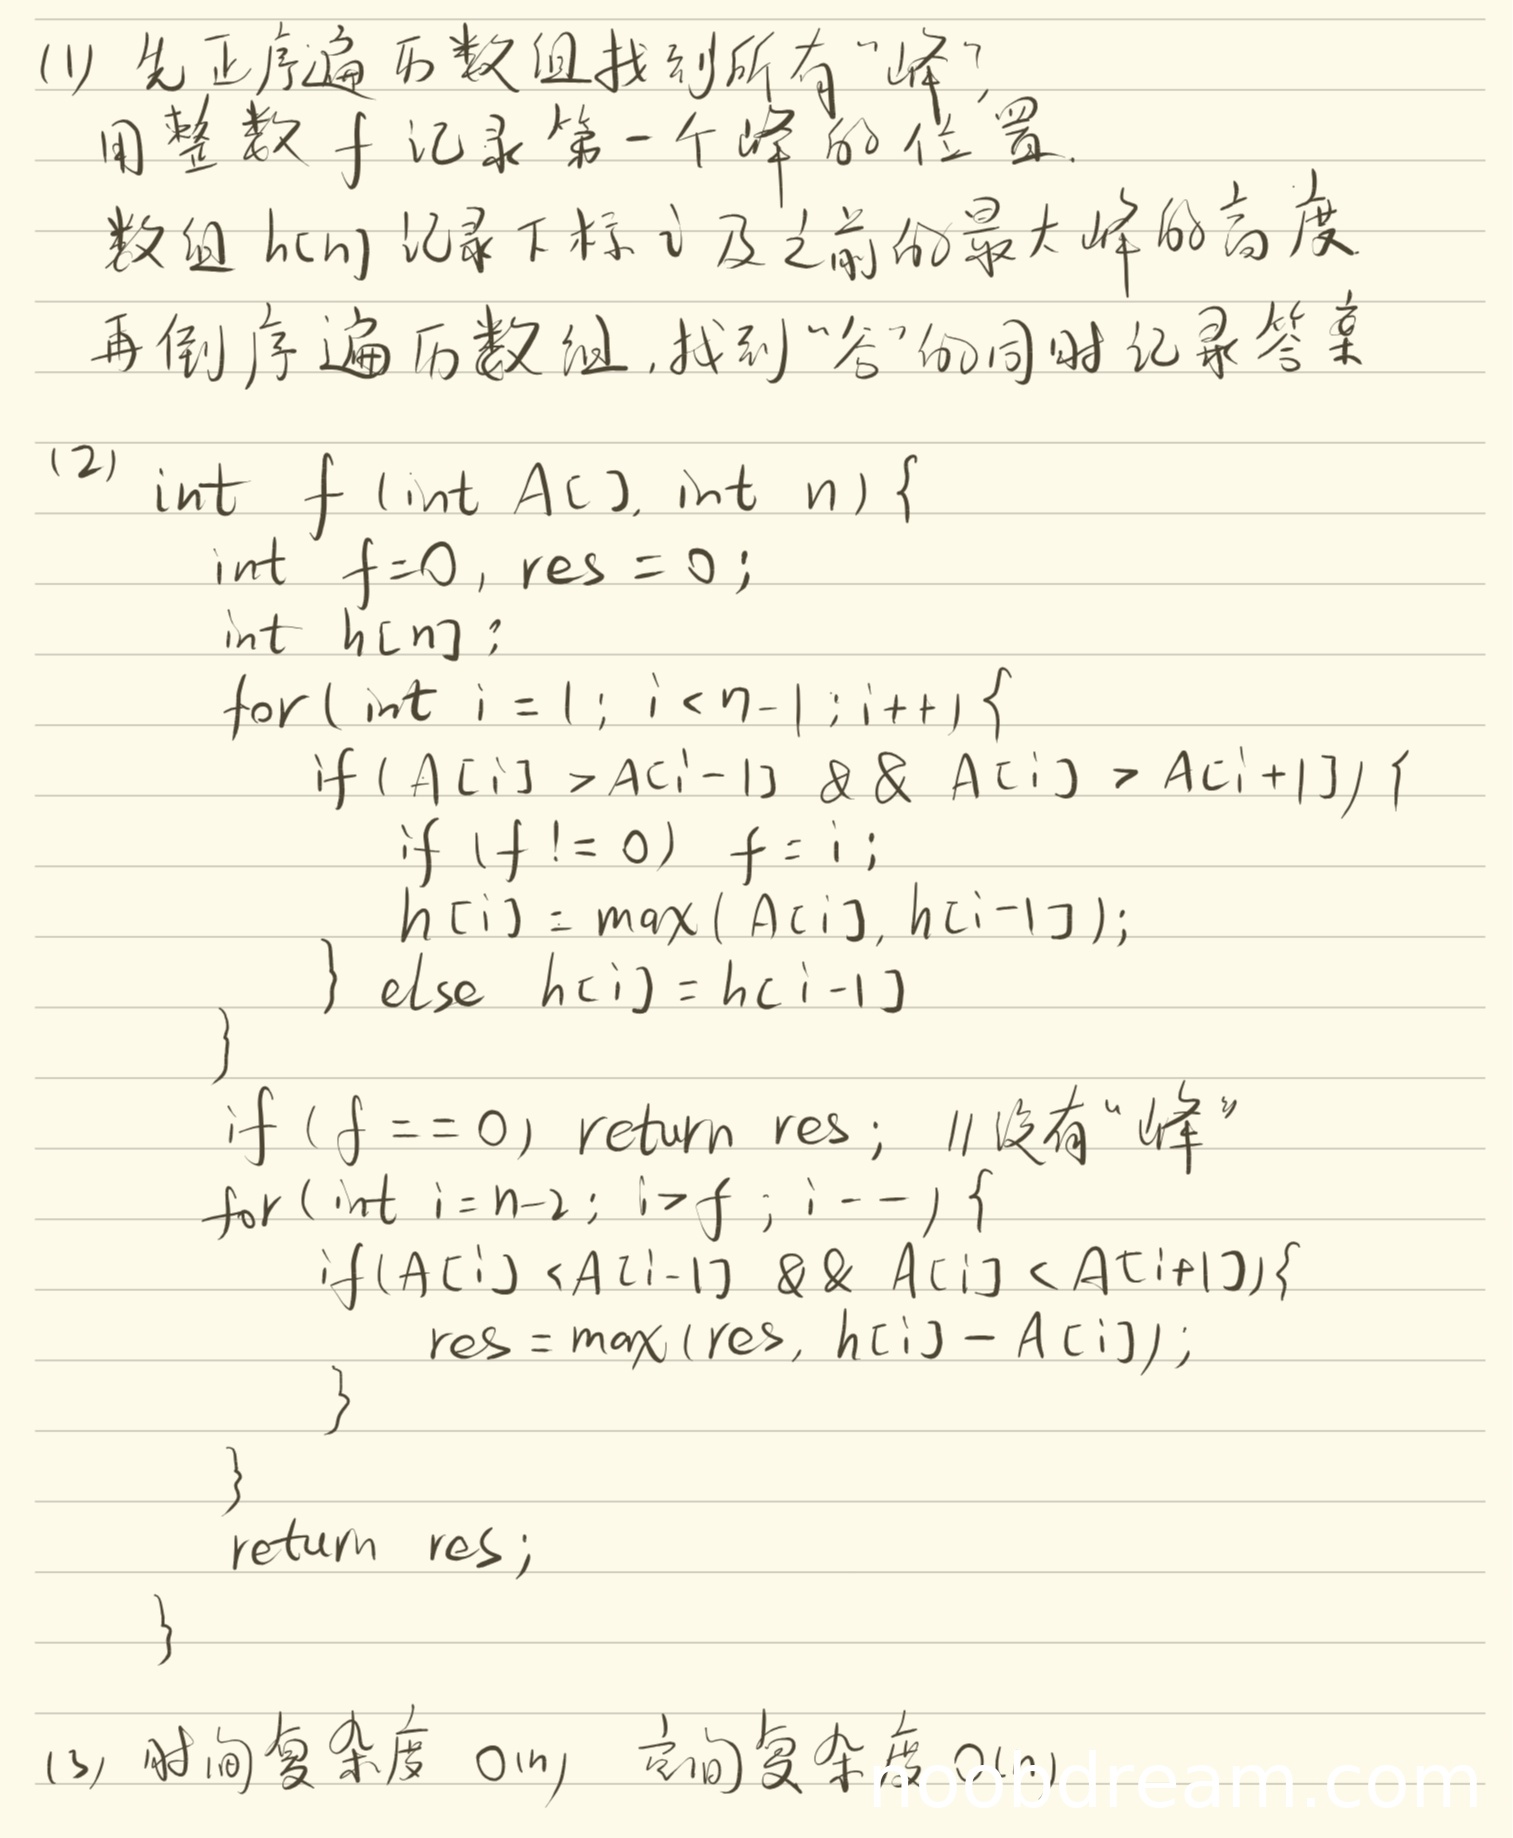 (1) 先正序遍历数组找到所有“峰”,
用整数 f 记录第一个峰的位置.
数组 h[n] 记录下标 i 及之前的最大峰的高度
再倒序遍历数组,找到“谷”的同时纪录答案
(2) int f (int A[], int n) {
int f=0, res = 0;
int h[n];
for(int i = 1; i < n-1; i++) {
if(A[i] > A[i-1] && A[i] > A[i+1]) {
if (f != 0) f = i;
h[i] = max(A[i], h[i-1]);
} else h[i] = h[i-1]
}
if (f == 0) return res; //没有“峰”
for(int i=n-2; i>f; i--) {
if(A[i] < A[i-1] && A[i] < A[i+1]) {
res = max(res, h[i] - A[i]);
}
}
return res;
}
(3) 时间复杂度 O(n) 空间复杂度 O(n)
noobdream.com